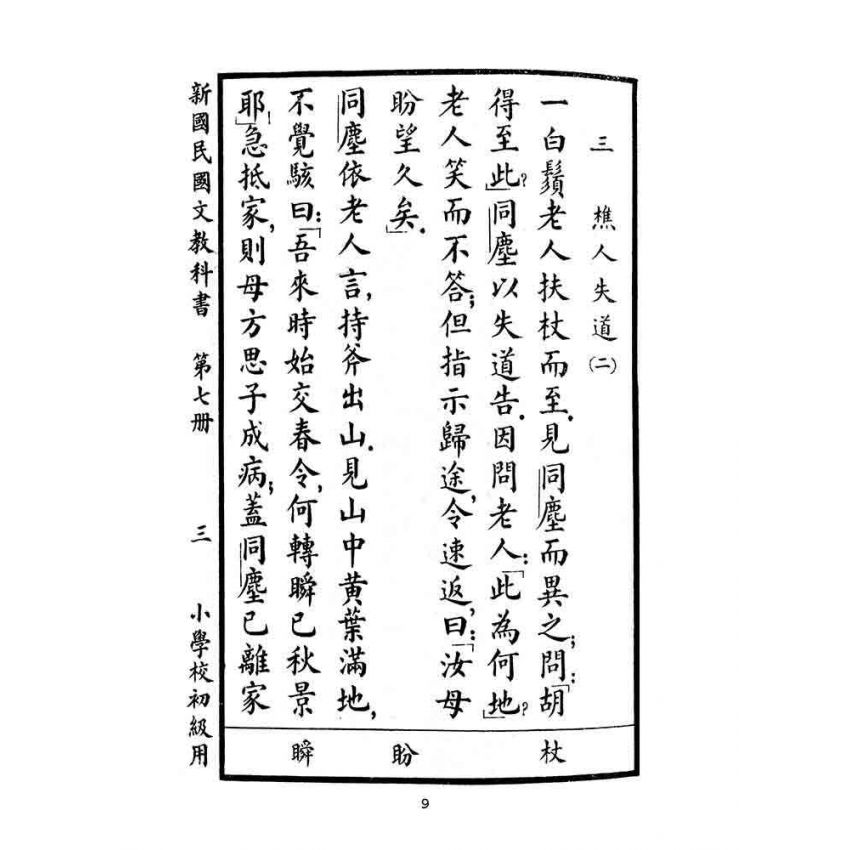 三　樵人失道(二)
一白鬚老人扶杖而至.見同塵而異之;問:「胡
得至此?」同塵以失道告.因問老人:「此為何地?」
老人笑而不答;但指示歸途,令速返,曰:「汝母
盼望久矣.」
同塵依老人言,持斧出山.見山中黃葉滿地,
不覺駭曰:「吾來時始交春令,何轉瞬已秋景
耶!」急抵家,則母方思子成病;蓋同塵已離家
杖
盼
瞬
新國民國文教科書　第七册　三　小學校初級用
9